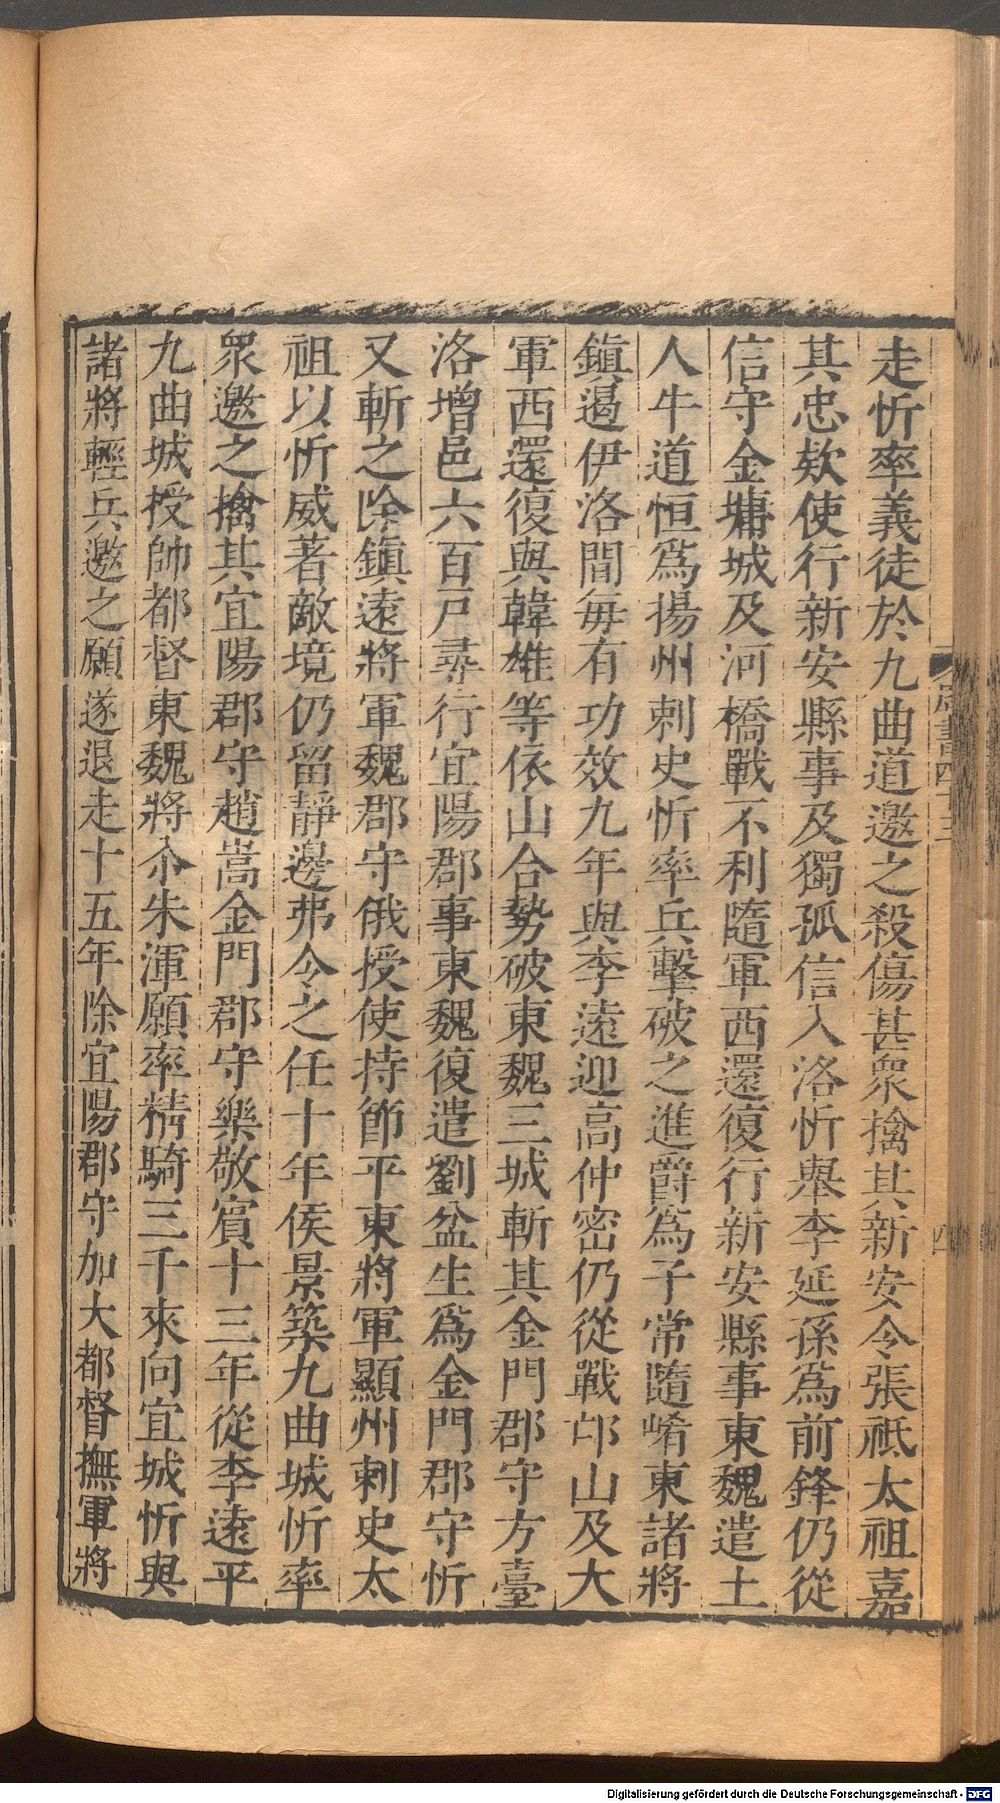 走忻率義徒於九曲道邀之殺傷甚衆擒其新安令張祗太祖嘉
其忠欵使行新安縣事及獨孤信入洛忻舉李延孫爲前鋒仍從
信守金墉城及河橋戰不利隨軍西還復行新安縣事東魏遣土
人牛道恒爲揚州刺史忻率兵擊破之進爵爲子常隨崤東諸將
鎮遏伊洛間每有功效九年與李遠迎高仲密仍從戰邙山及大
軍西還復與韓雄等依山合勢破東魏三城斬其金門郡守方臺
洛增邑六百戸尋行宜陽郡事東魏復遣劉盆生爲金門郡守忻
又斬之除鎮遠將軍魏郡守俄授使持節平東將軍顯州刺史太
祖以忻威著敵境仍留靜邊弗令之任十年侯景築九曲城忻率
衆邀之擒其宜陽郡守趙嵩金門郡守樂敬賓十三年從李遠平
九曲城授帥都督東魏將尒朱渾願率精騎三千來向宜城忻與
諸將輕兵邀之願遂退走十五年除宜陽郡守加大都督撫軍將
周書四十三
四
Digitalisierung gefördert durch die Deutsche Forschungsgemeinschaft - DFG